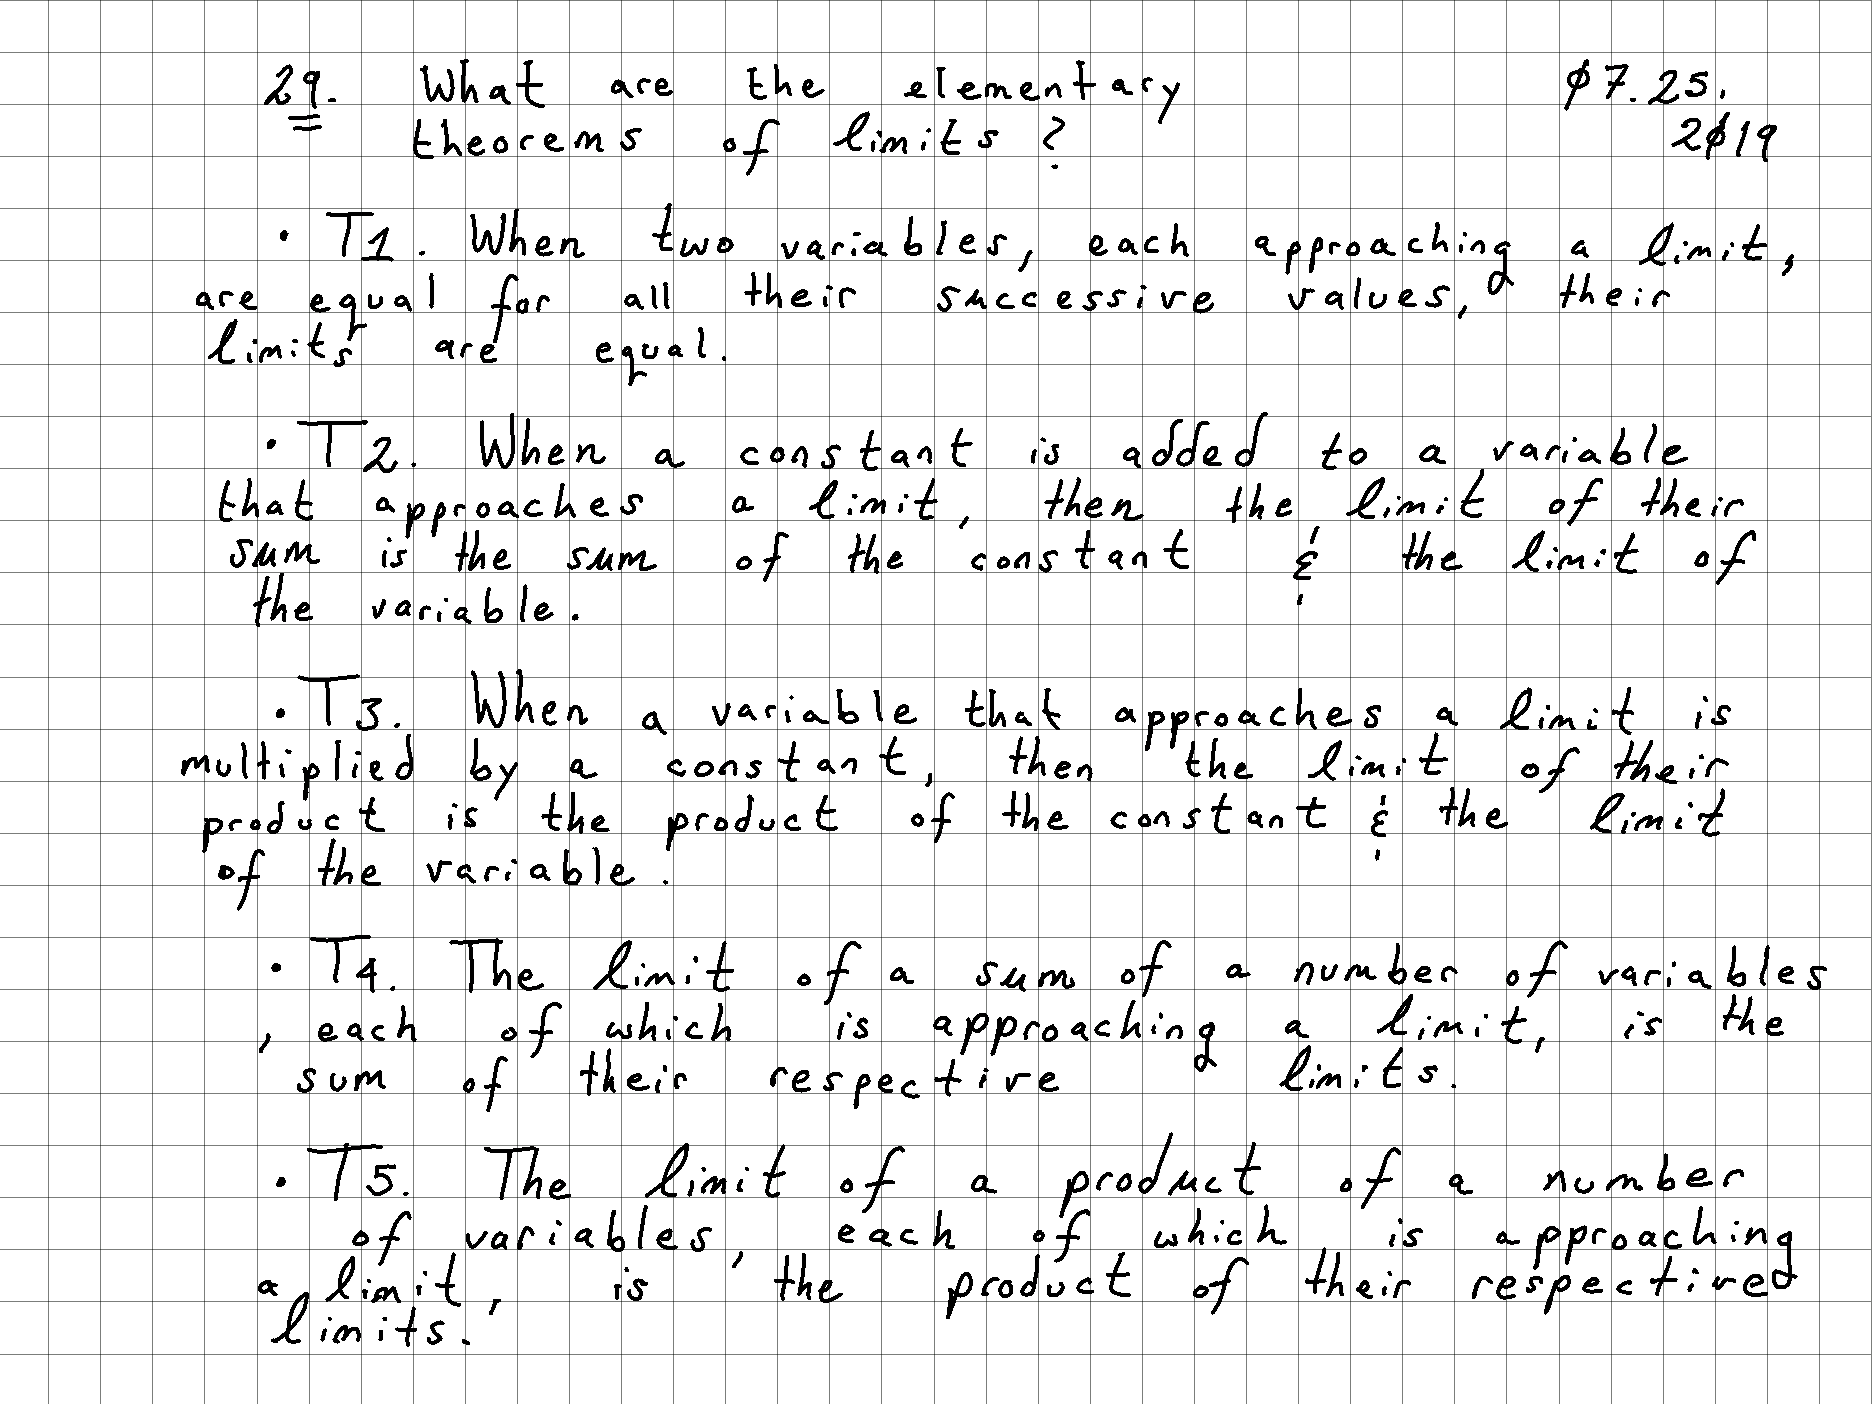 29. What are the elementary
theorems of limits?
07.25.
2019
• T1. When two variables, each approaching a limit,
are equal for all their successive values, their
limits are equal.
• T2. When a constant is added to a variable
that approaches a limit, then the limit of their
sum is the sum of the constant & the limit of
the variable.
• T3. When a variable that approaches a limit is
multiplied by a constant, then the limit of their
product is the product of the constant & the limit
of the variable.
• T4. The limit of a sum of a number of variables
, each of which is approaching a limit, is the
sum of their respective limits.
• T5. The limit of a product of a number
of variables, each of which is approaching
a limit, is the product of their respective
limits.